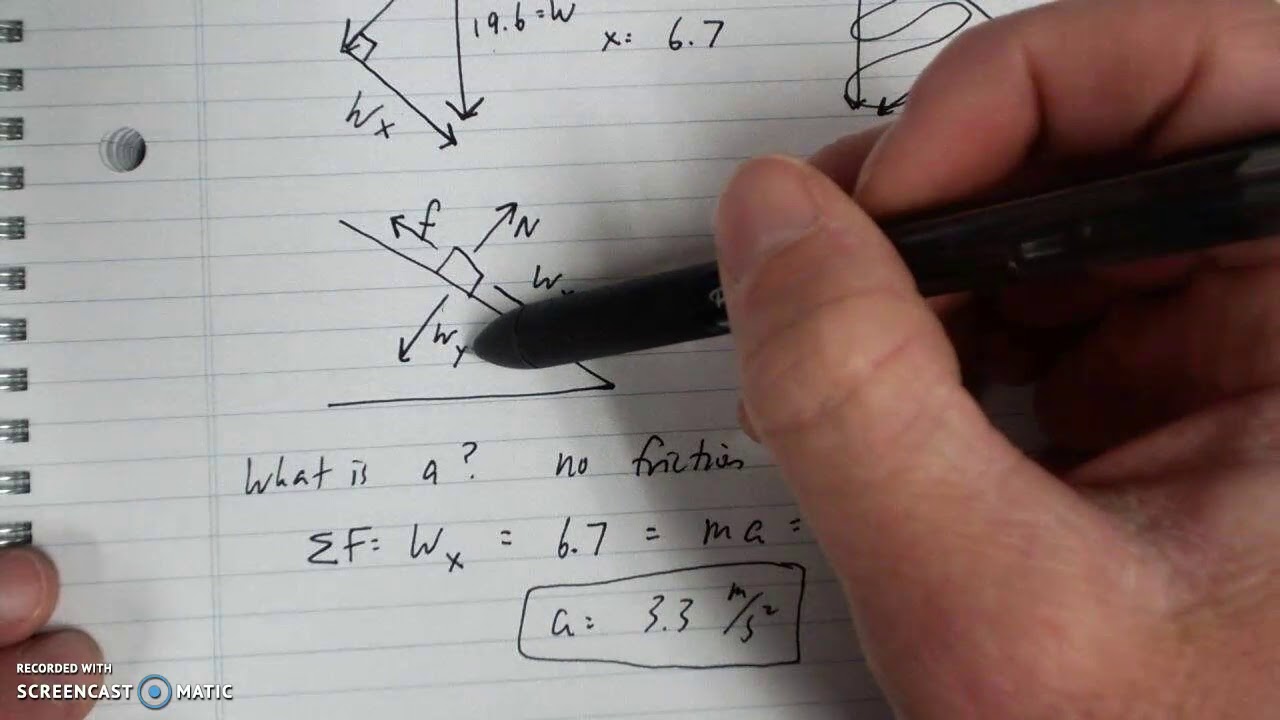 19.6=W
x= 6.7
Wx
f
N
W
Wy
What is a? no friction
ΣF= Wx = 6.7 = ma =
a= 3.3 m/s²
RECORDED WITH
SCREENCAST MATIC